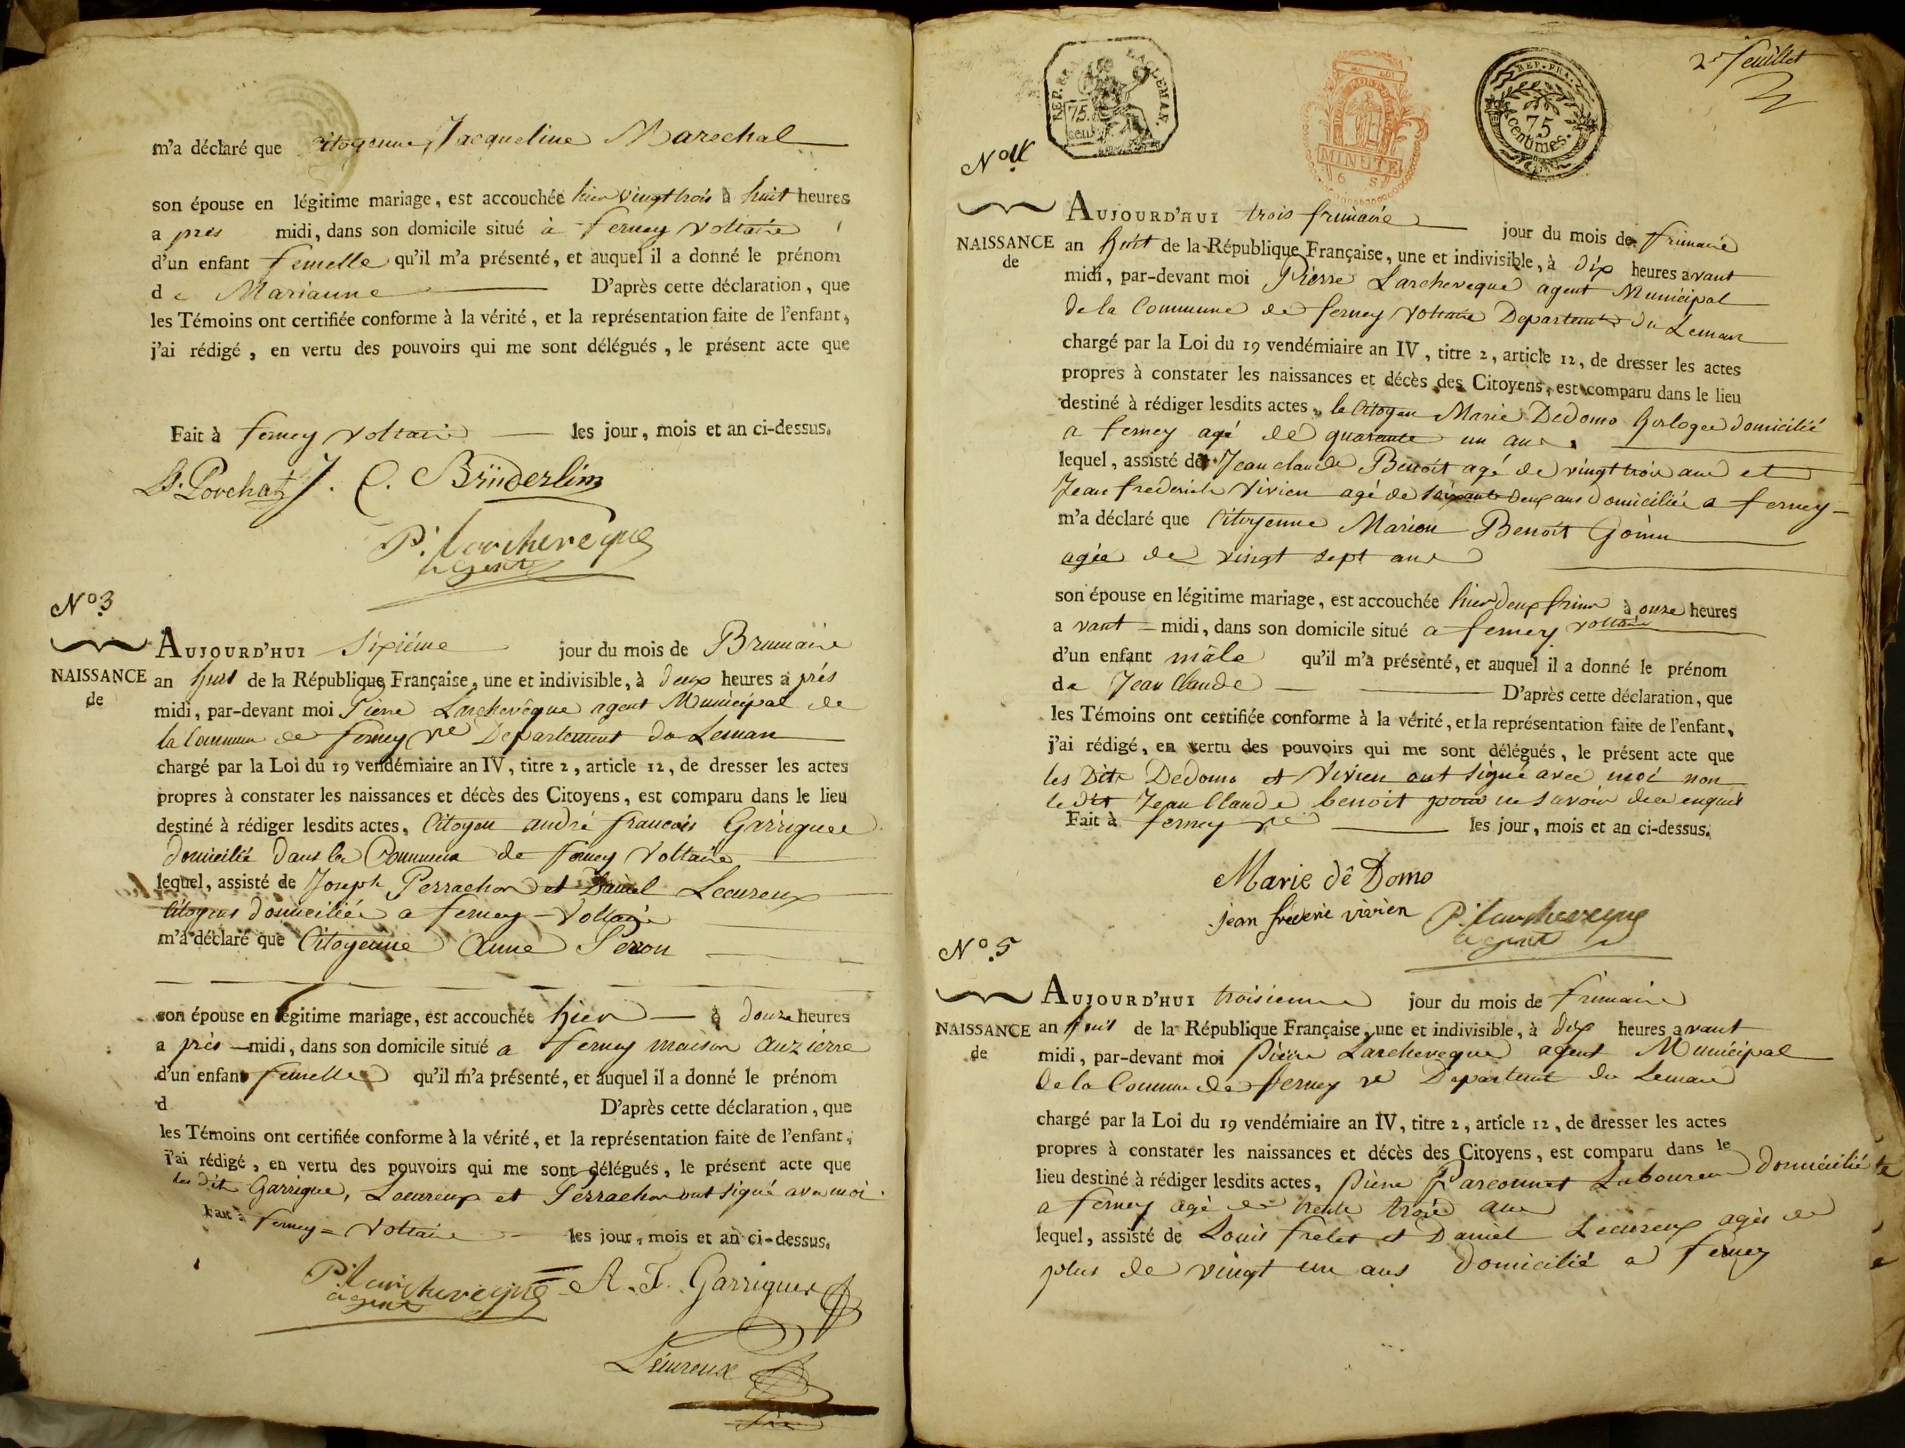 m'a déclaré que citoyenne Jacqueline Marechal
son épouse en légitime mariage, est accouchée hier vingt trois à huit heures
a prés midi, dans son domicile situé à ferney Voltaire
d'un enfant femelle qu'il m'a présenté, et auquel il a donné le prénom
de Marianne D'après cette déclaration, que
les Témoins ont certifiée conforme à la vérité, et la représentation faite de l'enfant,
j'ai rédigé, en vertu des pouvoirs qui me sont délégués, le présent acte que
Fait à ferney Voltaire les jour, mois et an ci-dessus.
Porchat J. C. Bründerlin
P. Larcheveque
agent
No 3
NAISSANCE
de
AUJOURD'HUI Sixiéme jour du mois de Brumaire
an huit de la République Française, une et indivisible, à deux heures a prés
midi, par-devant moi Pierre Larcheveque agent Municipal de
la Commune de ferney Vre Departement du Leman
chargé par la Loi du 19 vendémiaire an IV, titre 2, article 12, de dresser les actes
propres à constater les naissances et décès des Citoyens, est comparu dans le lieu
destiné à rédiger lesdits actes, Citoyen andré francois Garrigue
domicilié dans la Commune de ferney Voltaire
lequel, assisté de Joseph Perrachon et Daniel Lecureux
Citoyens domiciliés a ferney-Voltaire
m'a déclaré que Citoyenne Anne Peron
son épouse en légitime mariage, est accouchée hier à douze heures
a prés midi, dans son domicile situé a ferney maison Auzierre
d'un enfant femelle qu'il m'a présenté, et auquel il a donné le prénom
d D'après cette déclaration, que
les Témoins ont certifiée conforme à la vérité, et la représentation faite de l'enfant,
j'ai rédigé, en vertu des pouvoirs qui me sont délégués, le présent acte que
les dits Garrigue, Lecureux et Perrachon ont signé avec moi.
Fait à ferney = Voltaire les jour, mois et an ci-dessus.
P. Larcheveque A. F. Garrigues
agent
Lécureux
2e feuillet
REP. FRA.
75
cent
MINUTE
REP. FRA.
75
centimes.
No 4
NAISSANCE
de
AUJOURD'HUI trois frimaire jour du mois de frimaire
an huit de la République Française, une et indivisible, à dix heures avant
midi, par-devant moi Pierre Larcheveque agent Municipal
de la Commune de ferney Voltaire Departemt du Leman
chargé par la Loi du 19 vendémiaire an IV, titre 2, article 12, de dresser les actes
propres à constater les naissances et décès des Citoyens, est comparu dans le lieu
destiné à rédiger lesdits actes, le Citoyen Marie Dedomo horloger domicilié
a ferney agé de quarante un ans
lequel, assisté de Jean claude Benoit agé de vingt trois ans et
Jean frederich Vivien agé de soixante deux ans domiciliés a ferney
m'a déclaré que Citoyenne Marion Benoit
agée de vingt sept ans
son épouse en légitime mariage, est accouchée hier deux frimr à onze heures
avant midi, dans son domicile situé a ferney voltaire
d'un enfant mâle qu'il m'a présenté, et auquel il a donné le prénom
de Jean Claude D'après cette déclaration, que
les Témoins ont certifiée conforme à la vérité, et la représentation faite de l'enfant,
j'ai rédigé, en vertu des pouvoirs qui me sont délégués, le présent acte que
les Dits Dedomo et Vivien ont signé avec moi non
le dit Jean Claude benoit pour ne savoir de ce enquis
Fait à ferney Vre les jour, mois et an ci-dessus.
Marie dê Domo
jean frederic vivien P. Larcheveque
agent
No. 5
NAISSANCE
de
AUJOURD'HUI troisieme jour du mois de frimaire
an huit de la République Française, une et indivisible, à dix heures avant
midi, par-devant moi Pierre Larcheveque agent Municipal
de la Commune de ferney Vre Departemt du Leman
chargé par la Loi du 19 vendémiaire an IV, titre 2, article 12, de dresser les actes
propres à constater les naissances et décès des Citoyens, est comparu dans le
lieu destiné à rédiger lesdits actes, Pierre Parconnet Laboureur domicilié
a ferney agé de trente trois ans
lequel, assisté de Louis frelet et Daniel Lecureux agés de
plus de vingt un ans domicilié a ferney